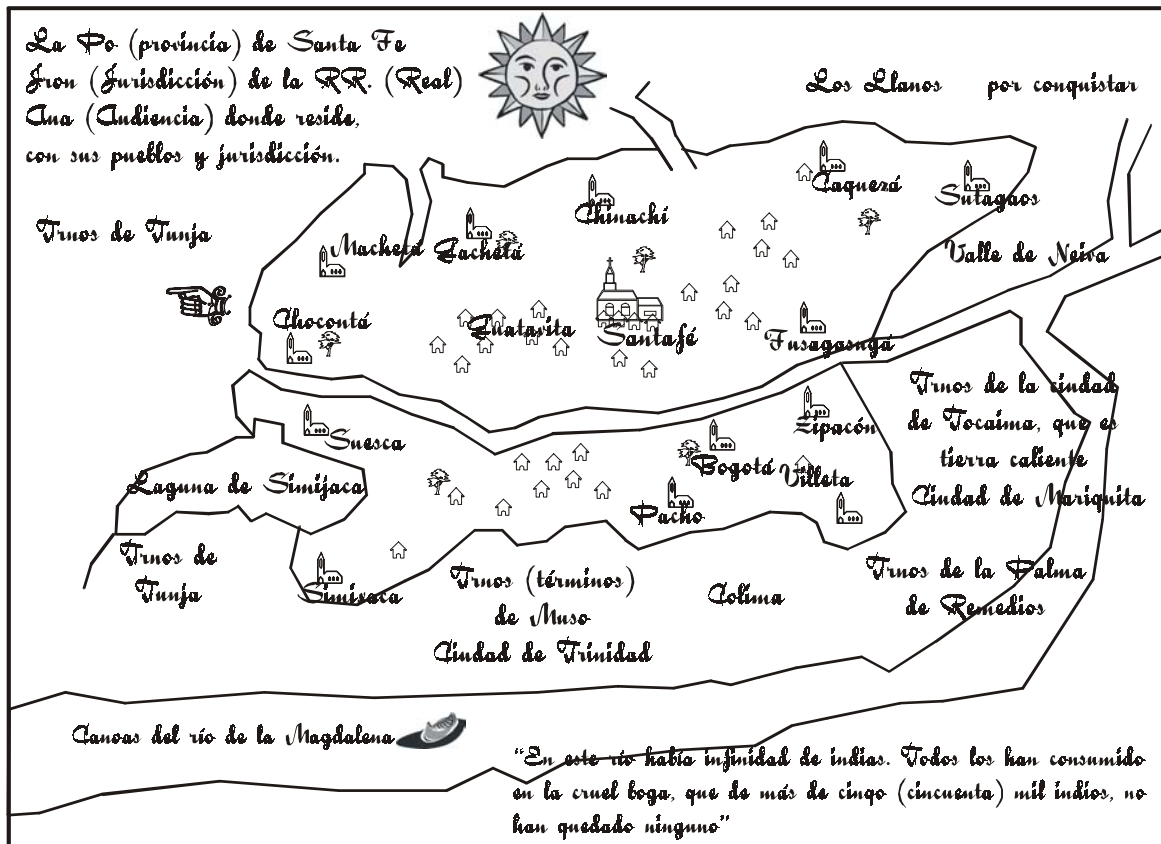 La Po (provincia) de Santa Fe
Jron (Jurisdicción) de la RR. (Real)
Ana (Audiencia) donde reside,
con sus pueblos y jurisdicción.
Los Llanos por conquistar
Trnos de Tunja
Chinachi
Caquezá
Sutagaos
Machetá
Gachetá
Valle de Neiva
Chocontá
Guatavita
Santafé
Fusagasugá
Trnos de la ciudad
de Tocaima, que es
tierra caliente
Ciudad de Mariquita
Suesca
Zipacón
Bogotá
Villeta
Laguna de Simijaca
Pacho
Trnos de
Tunja
Simixaca
Trnos (términos)
de Muso
Ciudad de Trinidad
Colima
Trnos de la Palma
de Remedios
Canoas del río de la Magdalena
“En este río había infinidad de indias. Todos los han consumido
en la cruel boga, que de más de cinqo (cincuenta) mil indios, no
han quedado ninguno”